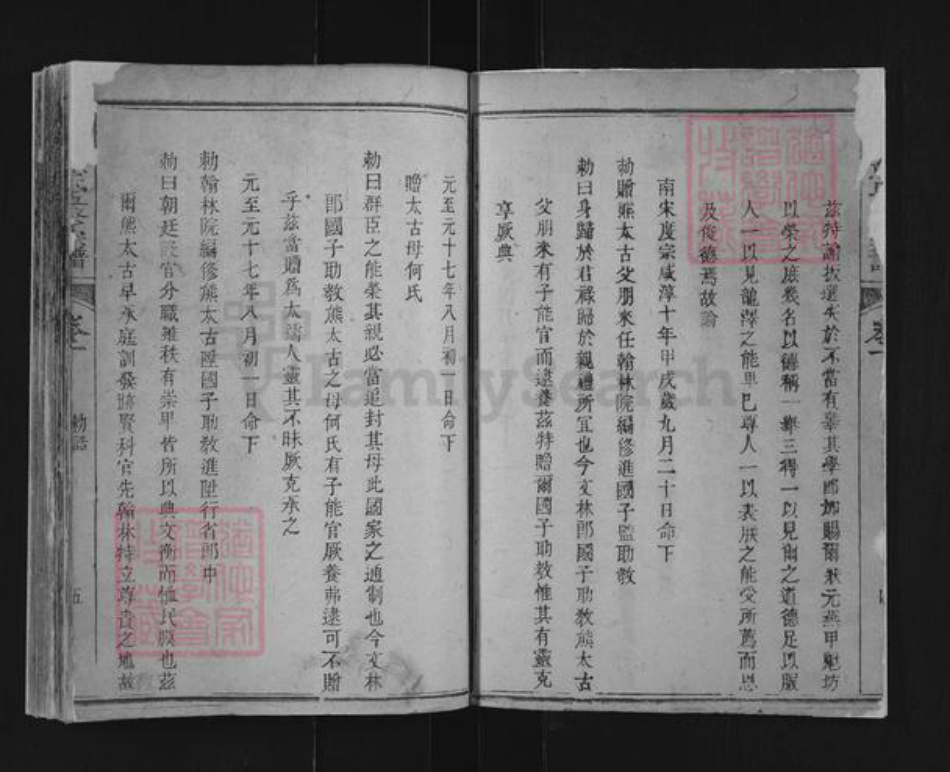 茲特諭拔選失於不當有辜其學卽加賜爾狀元燕甲魁坊
以榮之庶幾名以德稱一舉三得一以見爾之道德足以服
人一以見龍澤之能卑已尊人一以表朕之能受所薦而恩
及俊德焉故諭
南宋度宗咸淳十年甲戌歲九月二十日命下
勑贈熊太古父朋來任翰林院編修進國子監助教
勑曰身歸於君祿歸於親禮所宜也今文林郎國子助教熊太古
父朋來有子能官而逮養茲特贈爾國子助教惟其有靈克
享厥典
元至元十七年八月初一日命下
贈太古母何氏
勑曰群臣之能榮其親必當追封其母此國家之通制也今文林
郎國子助教熊太古之母何氏有子能官厥養弗逮可不贈
乎茲當贈爲太孺人靈其不昧厥克承之
元至元十七年八月初一日命下
勑翰林院編修熊太古陞國子助教進陞行省郎中
勑曰朝廷設官分職雖秩有崇卑皆所以典文衡而恤民瘼也茲
爾熊太古早承庭訓發跡賢科官先翰林特立尊貴之地故
卷一
勅誥
五
卷一
FamilySearch